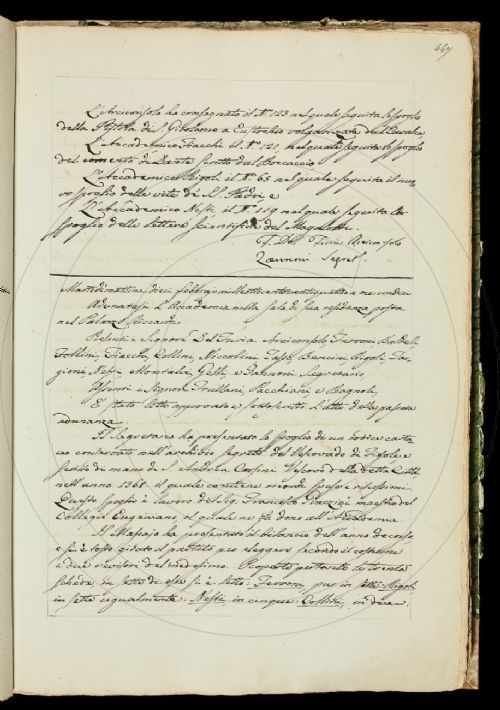 469
L'Arciconsolo ha consegnato il N.° 123 nel quale seguita lo spoglio
della Pistola di S. Girolamo a Eustochio volgarizzata dal
L'Accademico Fiacchi il N.° 121 nel quale seguita lo spoglio
del comento di Dante scritto dal Boccaccio
L'Accademico Rigoli il N.° 65 nel quale seguita il nuo
vo spoglio delle vite de' SS. Padri, e
L'Accademico Nesti, il N.° 119 nel quale seguita lo
spoglio delle lettere scientifiche del Magalotti.
F. Del Furia Arciconsolo
Zannoni Segret.
Martedì mattina dieci febbrajo mille ottocento ventiquattro a ore undici
Adunatasi l'Accademia nella sala di sua residenza posta
nel Palazzo Riccardi
Presenti i Signori Del Furia Arciconsolo Ferroni
Follini, Fiacchi, Collini, Niccolini, Tassi, Bencini, Rigoli, Tar
gioni, Nesti, Montalvi, e Zannoni Segretario
Assenti i Signori Frullani, Sacchiani e Bagnoli,
È stato letto approvato e sottoscritto l'atto della passata
adunanza.
Il Segretario ha presentato lo spoglio di un codice carta
ceo conservato nell'archivio segreto del Vescovado di Fiesole e
scritto di mano di S. Andrea Corsini Vescovo della detta Città
nell'anno 1361. il quale contiene ricordi spese e riscossioni.
Questo spoglio è lavoro del Sig. Francesco maestro del
Collegio Eugeniano, il quale ne fa dono all'Accademia.
Il Massajo ha presentato il bilancio dell'anno decorso,
e si è tosto gidato il partito per eleggere secondo il costume
i due revisori del medesimo. Raccolte pertanto le tredici
schede, in sette di esse si è letto: Ferroni, pur in sette: Rigoli
in sette egualmente: Nesti, in cinque: Collini, in due: